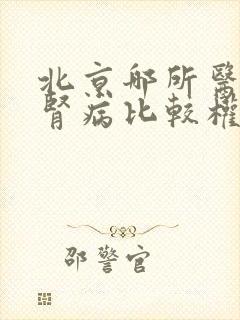 北京邮所醫
腎病比較權
邵警官